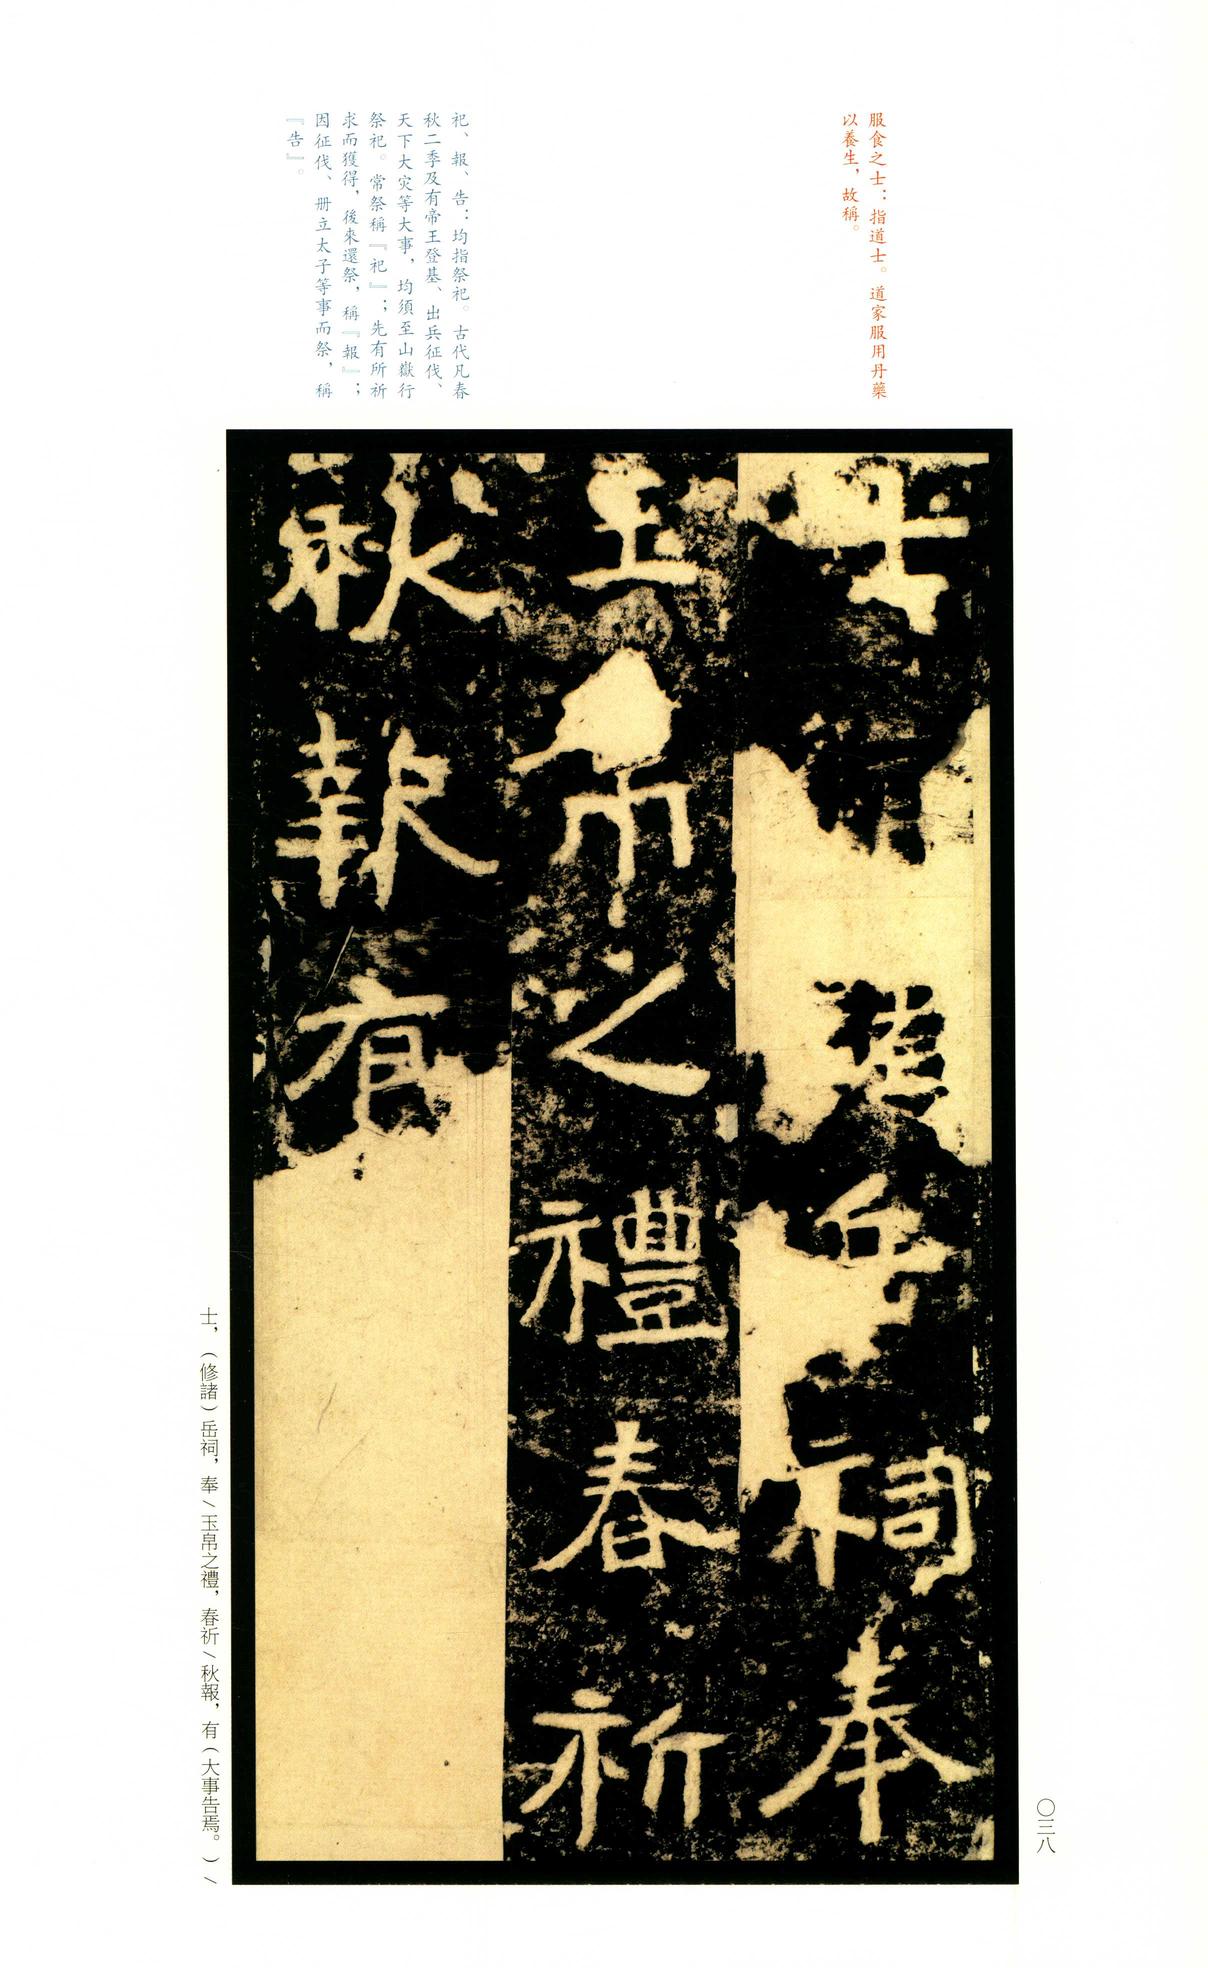 服食之士：指道士。道家服用丹藥
以養生，故稱。
祀、報、告：均指祭祀。古代凡春
秋二季及有帝王登基、出兵征伐、
天下大灾等大事，均須至山嶽行
祭祀。常祭稱『祀』；先有所祈
求而獲得，後來還祭，稱『報』；
因征伐、册立太子等事而祭，稱
『告』。
士脩諸岳祠奉
玉帛之禮春祈
秋報有
士，（修諸）岳祠，奉／玉帛之禮，春祈／秋報，有（大事告焉。）／
〇三八